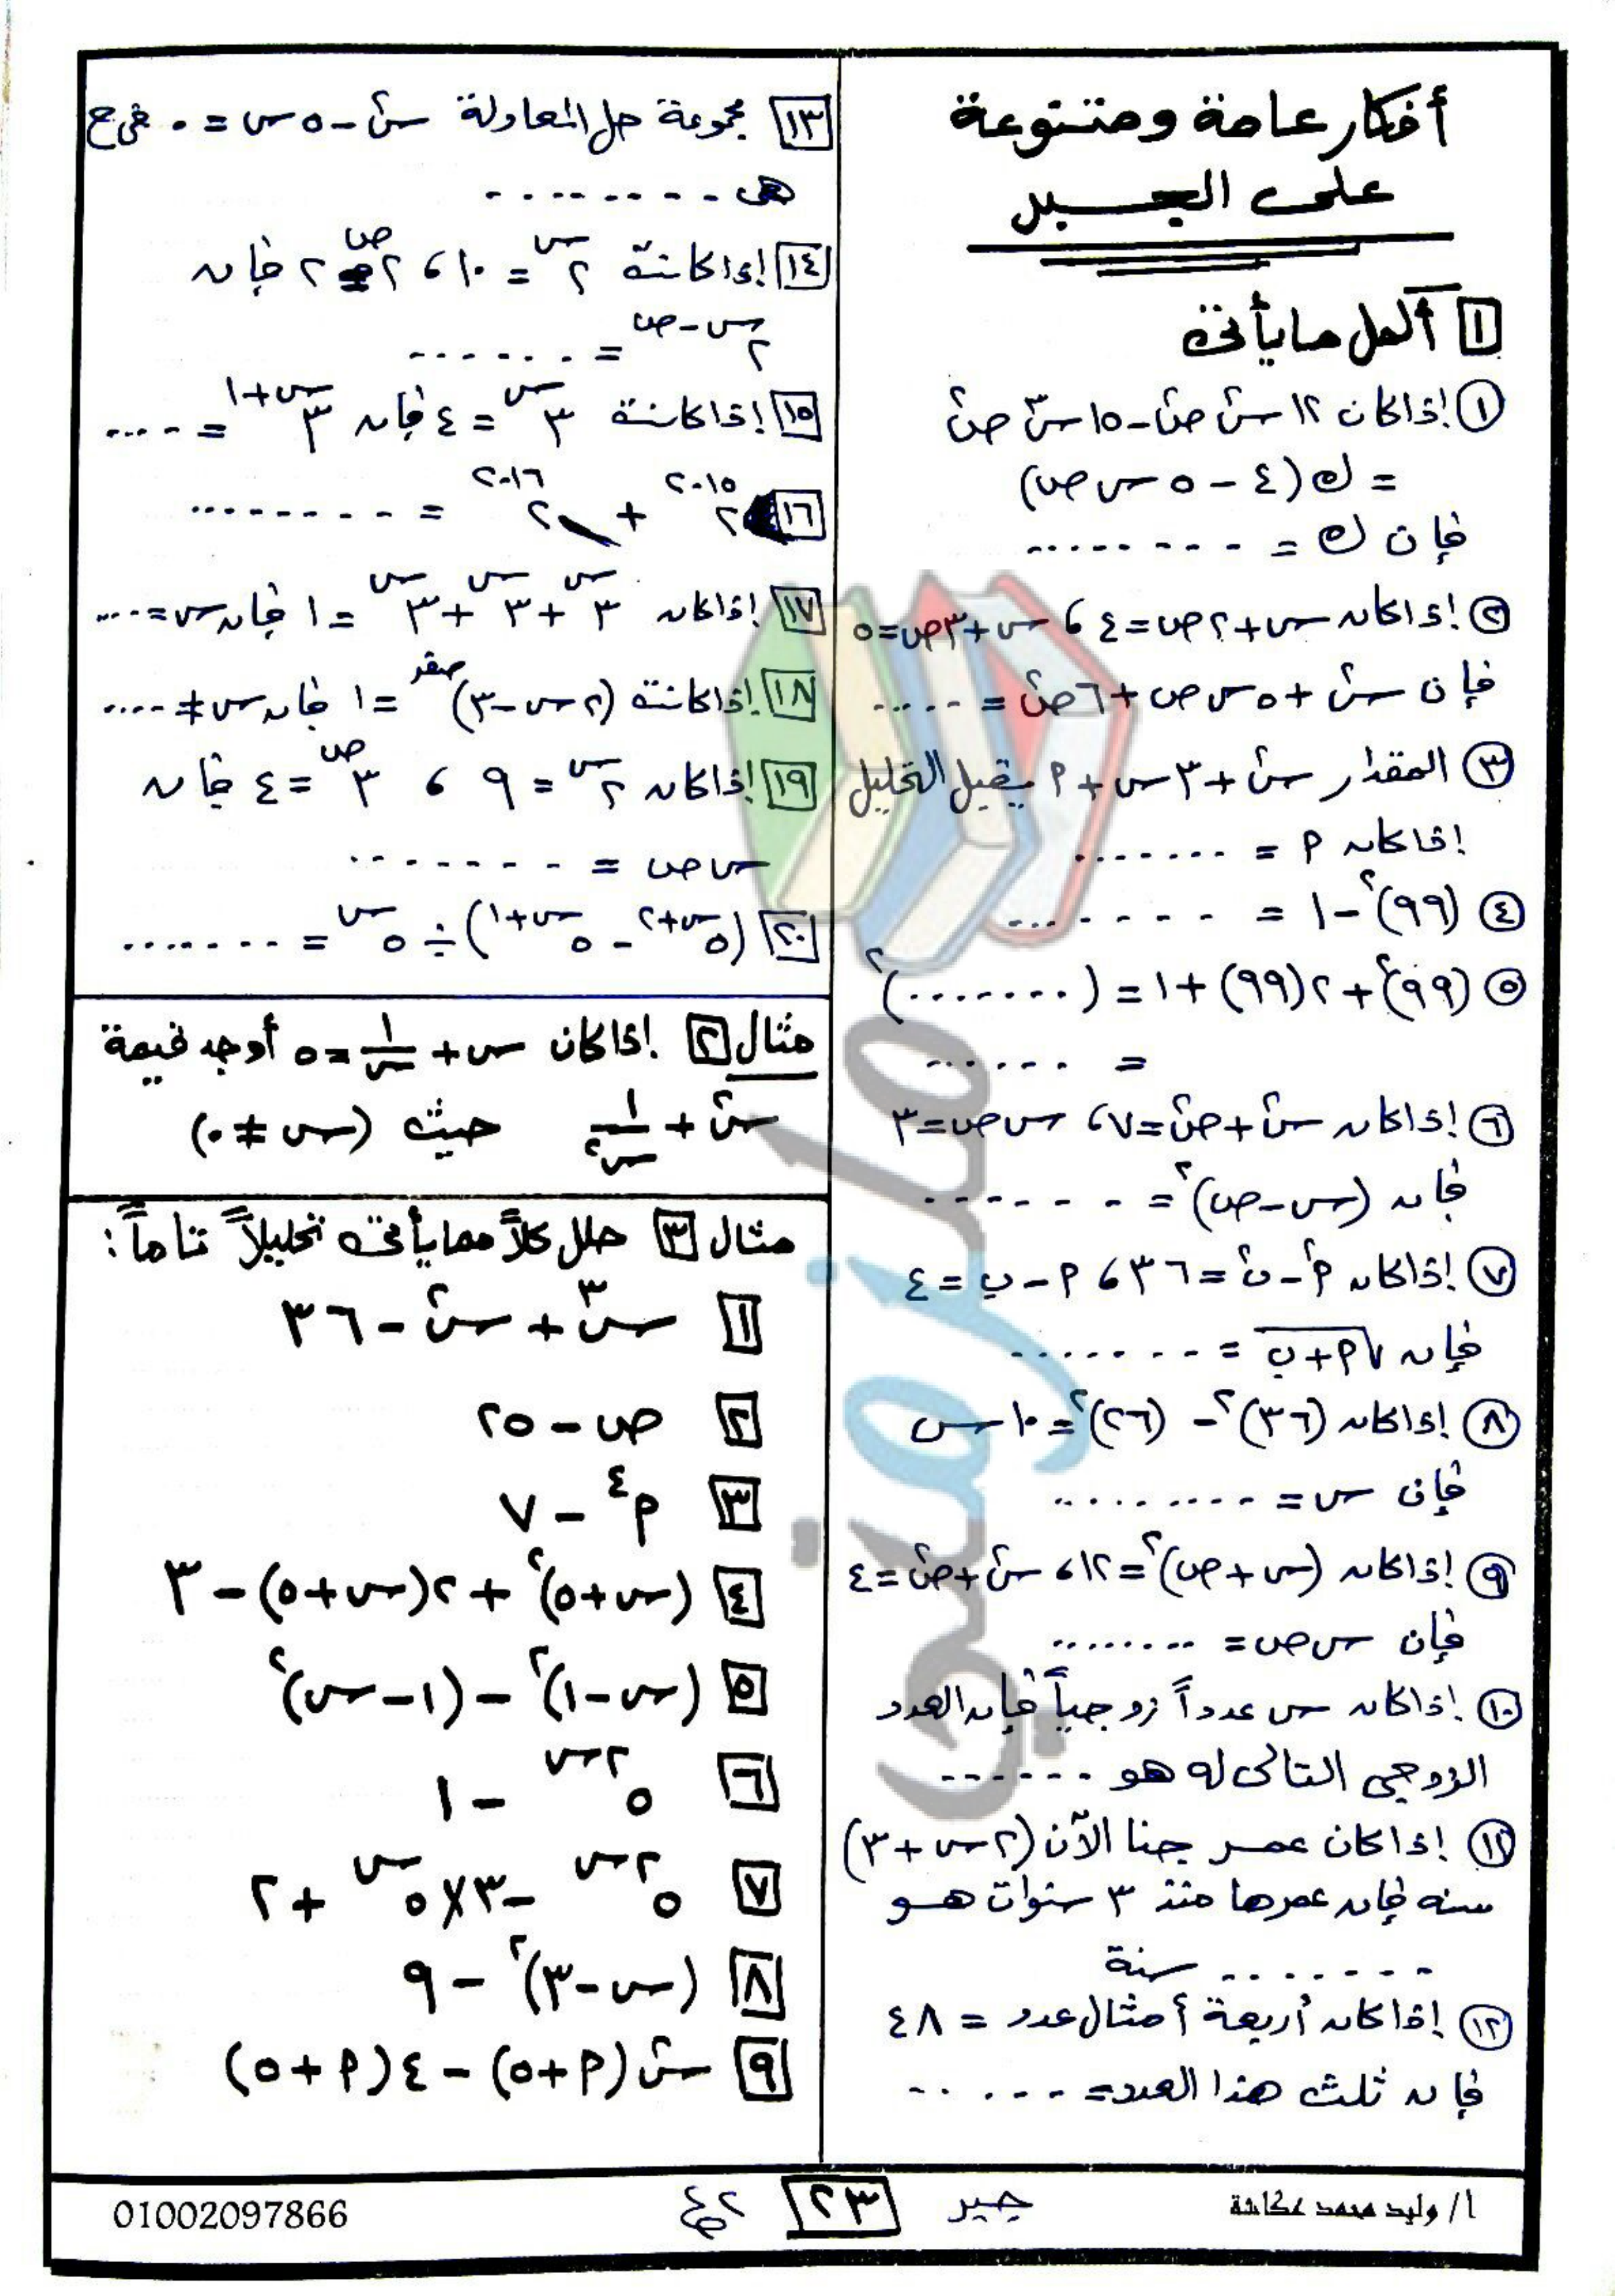 أفكار عامة ومتنوعة
على الجبر
١ أكمل ما يأتى
① إذا كان ١٢ س٢ ص٢ - ١٥ س٣ ص٣
= ك (٤ - ٥ س ص)
فإن ك = ........
② إذا كان س + ٢ص = ٤ ، س + ٣ص = ٥
فإن س٢ + ٥ س ص + ٦ ص٢ = .....
③ المقدار س٢ + ٣ س + م يقبل التحليل
إذا كان م = .......
④ (٩٩)٢ - ١ = .......
⑤ (٩٩)٢ + ٢(٩٩) + ١ = (.......)٢
= ......
⑥ إذا كان س٢ + ص٢ = ٧ ، س ص = ٣
فإن (س - ص)٢ = .......
⑦ إذا كان م٢ - ب٢ = ٣٦ ، م - ب = ٤
فإن √م + ب = ........
⑧ إذا كان (٣٦)٢ - (٢٦)٢ = ١٠ س
فإن س = .........
⑨ إذا كان (س + ص)٢ = ١٢ ، س٢ + ص٢ = ٤
فإن س ص = ........
⑩ إذا كان س عدداً زوجياً فإن العدد
الزوجى التالى له هو ......
⑪ إذا كان عمر جنا الآن (٢س + ٣)
سنه فإن عمرها منذ ٣ سنوات هو
........ سنة
⑫ إذا كان أربعة أمثال عدد = ٤٨
فإن ثلث هذا العدد = ......
١٣ مجموعة حل المعادلة س٢ - ٥ س = ٠ فى ح
هى ........
١٤ إذا كانت ٢^س = ١٠ ، ٢^ص = ٢ فإن
٢^(س - ص) = ......
١٥ إذا كانت ٣^س = ٤ فإن ٣^(س+١) = .....
١٦ ٢^٢٠١٥ + ٢^٢٠١٦ = ........
١٧ إذا كان ٣^س + ٣^س + ٣^س = ١ فإن س = ....
١٨ إذا كانت (٢س - ٣)^صفر = ١ فإن س ≠ ....
١٩ إذا كان ٢^س = ٩ ، ٣^ص = ٤ فإن
س ص = ........
٢٠ (٥^(س+٢) - ٥^(س+١)) ÷ ٥^س = .......
مثال ٢ إذا كان س + ١/س = ٥ أوجد قيمة
س٢ + ١/س٢ حيث (س ≠ ٠)
مثال ٣ حلل كلاً مما يأتى تحليلاً تاماً :
١ س٣ + س٢ - ٣٦
٢ ص - ٢٥
٣ م^٤ - ٧
٤ (س + ٥)٢ + ٢(س + ٥) - ٣
٥ (س - ١)٢ - (١ - س)٢
٦ ٥^٢س - ١
٧ ٥^٢س - ٣ × ٥^س + ٢
٨ (س - ٣)٢ - ٩
٩ س٢ (م + ٥) - ٤ (م + ٥)
أ/ وليد محمد عكاشة
جبر
٢٣
01002097866
ملزمتى